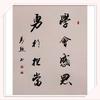 學會感恩
勇於擔當